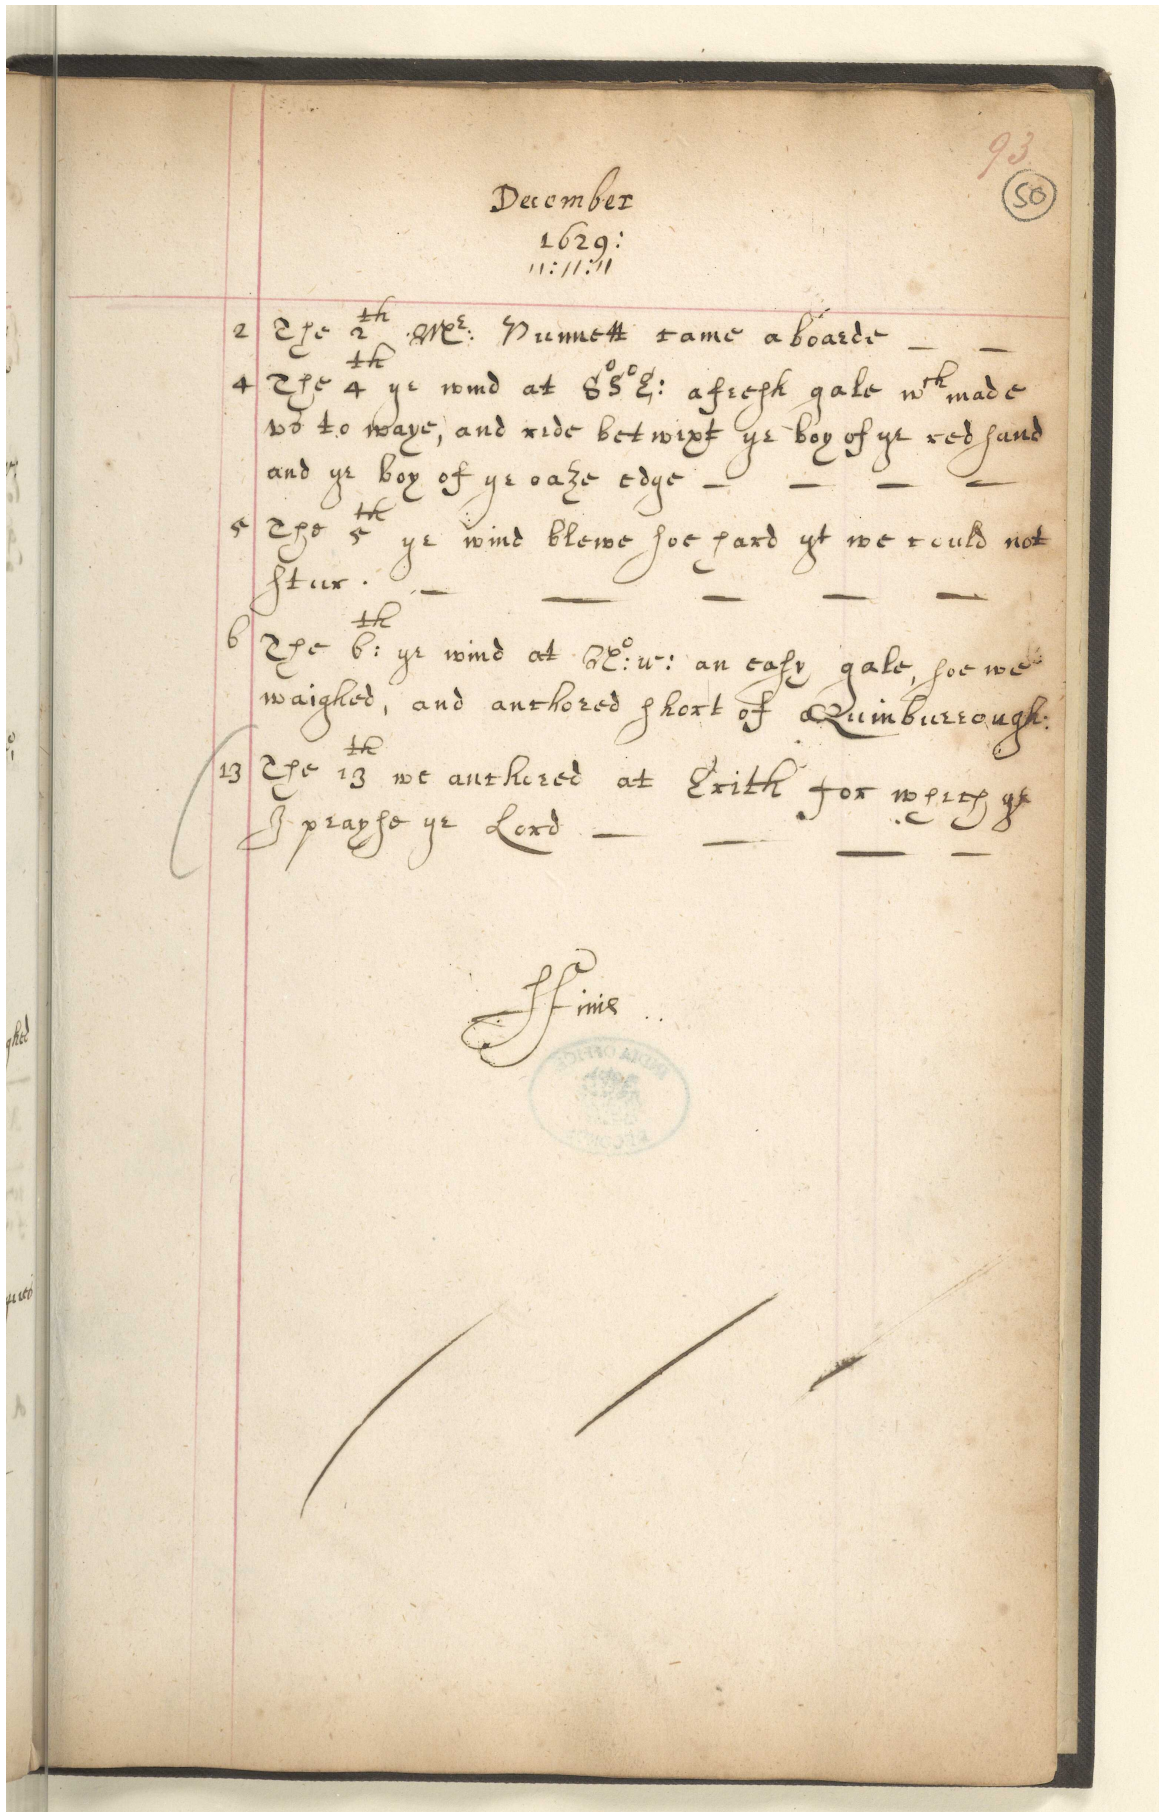 93
50
December
1629:
11:11:11
2 The 2th Mr: Punnett came aboarde
4 The 4th ye wind at So So E: afresh gale wch made
vs to waye, and ride betwixt ye boy of ye red sand
and ye boy of ye oaze edge
5 The 5th ye wind blewe soe hard yt we could not
stur.
6 The 6th: ye wind at No: w: an easy gale, soe we
waighed, and anchored short of Quinburrough:
13 The 13th we anchored at Erith for which
I prayse ye Lord
ffinis
INDIA OFFICE
RECORDS
ghed